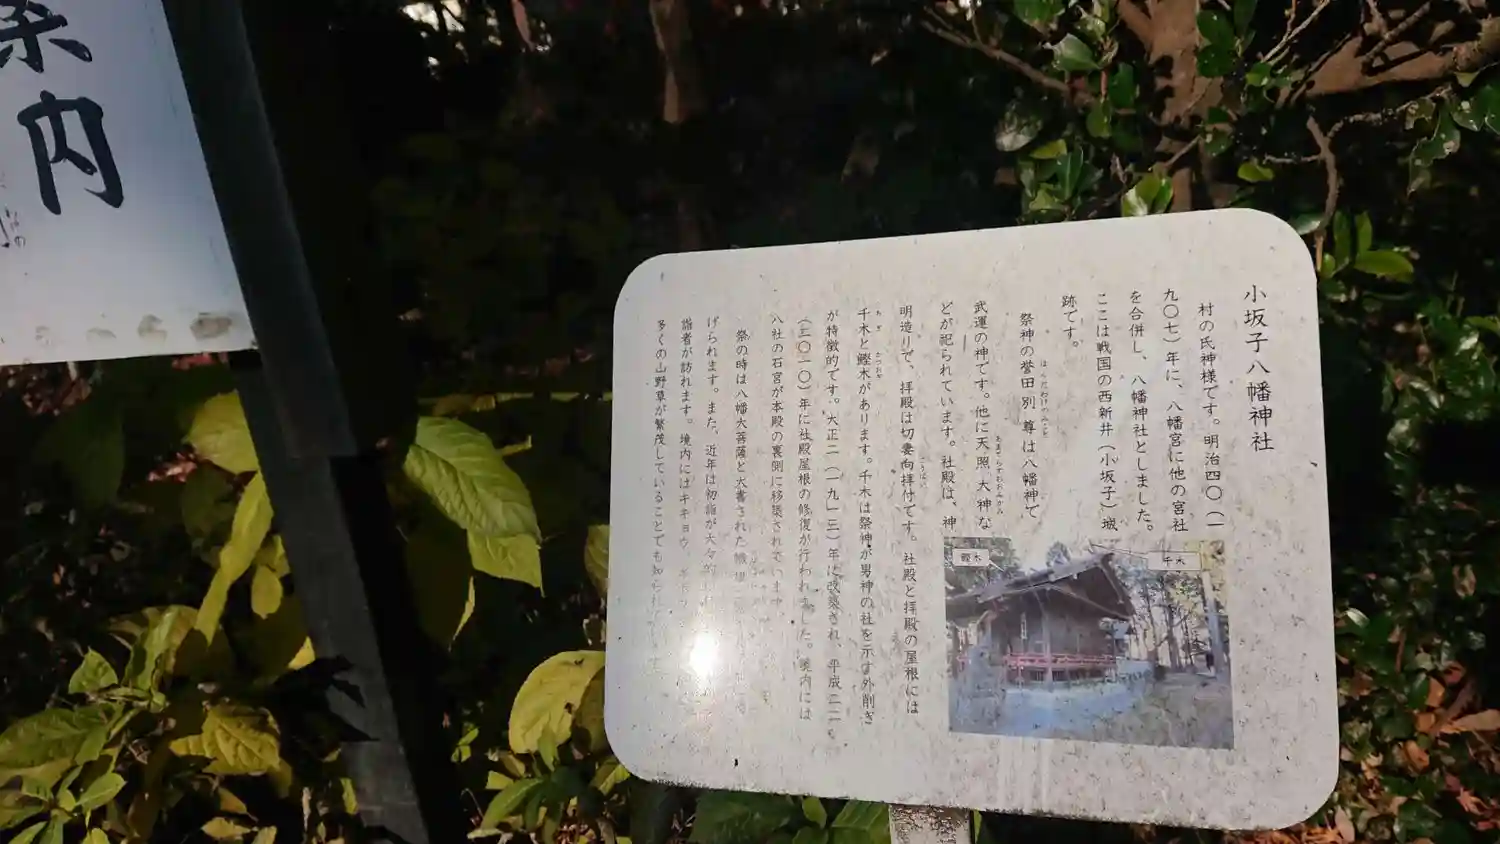 小坂子八幡神社
村の氏神様です。明治四〇(一
九〇七)年に、八幡宮に他の宮社
を合併し、八幡神社としました。
ここは戦国の西新井(小坂子)城
跡です。
祭神の誉田別尊は八幡神で
ほんだわけのみこと
武運の神です。他に天照大神な
あまてらすおおみかみ
どが祀られています。社殿は、神
明造りで、拝殿は切妻向拝付です。社殿と拝殿の屋根には
こうはい
千木と鰹木があります。千木は祭神が男神の社を示す外削ぎ
ちぎ かつおぎ
が特徴的です。大正二(一九一三)年に改築され、平成二二
(二〇一〇)年に社殿屋根の修復が行われました。境内には
八社の石宮が本殿の裏側に移築されています
祭の時は八幡大菩薩と大書された幟
げられます。また、近年は初詣が大々的
詣者が訪れます。境内にはキキョウ、
多くの山野草が繁茂していることでも知られ
鰹木
千木
案内